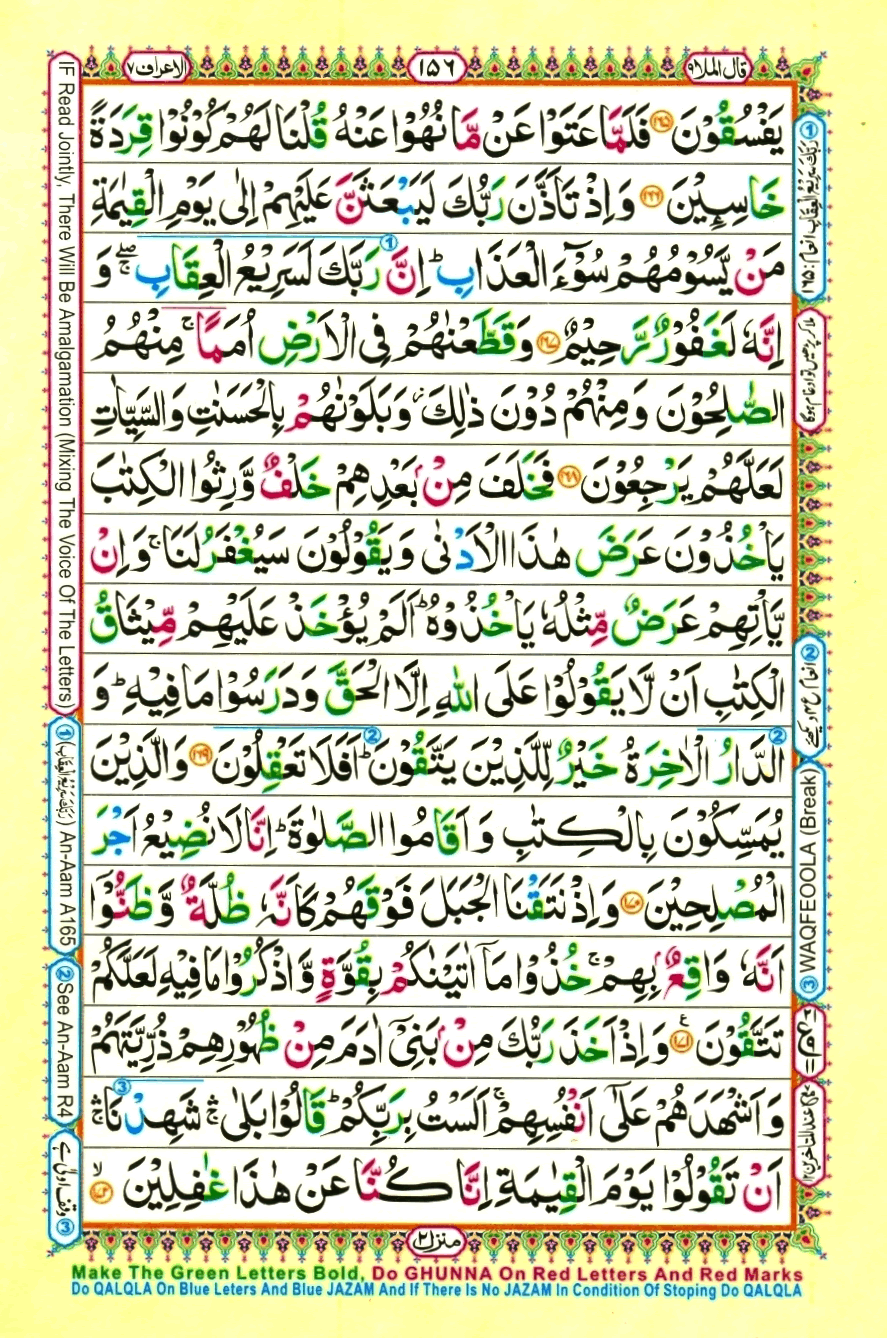 قال الملا ٩
١٥٦
الاعراف ٧
يَفْسُقُوْنَ ﴿١٦٥﴾ فَلَمَّا عَتَوْا عَنْ مَّا نُهُوْا عَنْهُ قُلْنَا لَهُمْ كُوْنُوْا قِرَدَةً
خَاسِـِٕيْنَ ﴿١٦٦﴾ وَاِذْ تَاَذَّنَ رَبُّكَ لَيَبْعَثَنَّ عَلَيْهِمْ اِلٰى يَوْمِ الْقِيٰمَةِ
مَنْ يَّسُوْمُهُمْ سُوْٓءَ الْعَذَابِ ؕ اِنَّ رَبَّكَ لَسَرِيْعُ الْعِقَابِ ۚۖ وَ
اِنَّهٗ لَغَفُوْرٌ رَّحِيْمٌ ﴿١٦٧﴾ وَقَطَّعْنٰهُمْ فِى الْاَرْضِ اُمَمًا ۚ مِنْهُمُ
الصّٰلِحُوْنَ وَمِنْهُمْ دُوْنَ ذٰلِكَ ؗ وَبَلَوْنٰهُمْ بِالْحَسَنٰتِ وَالسَّيِّاٰتِ
لَعَلَّهُمْ يَرْجِعُوْنَ ﴿١٦٨﴾ فَخَلَفَ مِنْۢ بَعْدِهِمْ خَلْفٌ وَّرِثُوا الْكِتٰبَ
يَاْخُذُوْنَ عَرَضَ هٰذَا الْاَدْنٰى وَيَقُوْلُوْنَ سَيُغْفَرُ لَنَا ۚ وَاِنْ
يَّاْتِهِمْ عَرَضٌ مِّثْلُهٗ يَاْخُذُوْهُ ؕ اَلَمْ يُؤْخَذْ عَلَيْهِمْ مِّيْثَاقُ
الْكِتٰبِ اَنْ لَّا يَقُوْلُوْا عَلَى اللّٰهِ اِلَّا الْحَقَّ وَدَرَسُوْا مَا فِيْهِ ؕ وَ
الدَّارُ الْاٰخِرَةُ خَيْرٌ لِّلَّذِيْنَ يَتَّقُوْنَ ؕ اَفَلَا تَعْقِلُوْنَ ﴿١٦٩﴾ وَالَّذِيْنَ
يُمَسِّكُوْنَ بِالْكِتٰبِ وَاَقَامُوا الصَّلٰوةَ ؕ اِنَّا لَا نُضِيْعُ اَجْرَ
الْمُصْلِحِيْنَ ﴿١٧٠﴾ وَاِذْ نَتَقْنَا الْجَبَلَ فَوْقَهُمْ كَاَنَّهٗ ظُلَّةٌ وَّظَنُّوْۤا
اَنَّهٗ وَاقِعٌۢ بِهِمْ ۚ خُذُوْا مَاۤ اٰتَيْنٰكُمْ بِقُوَّةٍ وَّاذْكُرُوْا مَا فِيْهِ لَعَلَّكُمْ
تَتَّقُوْنَ ﴿١٧١﴾ وَاِذْ اَخَذَ رَبُّكَ مِنْۢ بَنِىْۤ اٰدَمَ مِنْ ظُهُوْرِهِمْ ذُرِّيَّتَهُمْ
وَاَشْهَدَهُمْ عَلٰٓى اَنْفُسِهِمْ ۚ اَلَسْتُ بِرَبِّكُمْ ؕ قَالُوْا بَلٰى ۛۚ شَهِدْنَا ۛۚ
اَنْ تَقُوْلُوْا يَوْمَ الْقِيٰمَةِ اِنَّا كُنَّا عَنْ هٰذَا غٰفِلِيْنَ ﴿١٧٢﴾ ۙ
منزل ٢
Make The Green Letters Bold, Do GHUNNA On Red Letters And Red Marks
Do QALQLA On Blue Leters And Blue JAZAM And If There Is No JAZAM In Condition Of Stoping Do QALQLA
IF Read Jointly, There Will Be Amalgamation (Mixing The Voice Of The Letters)
① (رَبَّكَ سَرِيْعُ الْعِقَابِ) An-Aam A165
② See An-Aam R4
③ وقف اولٰی ہے
① رَبَّكَ سَرِيْعُ الْعِقَابِ انعام: ١٦٥
② انعام ع ٤ دیکھئے
③ WAQFEOOLA (Break)